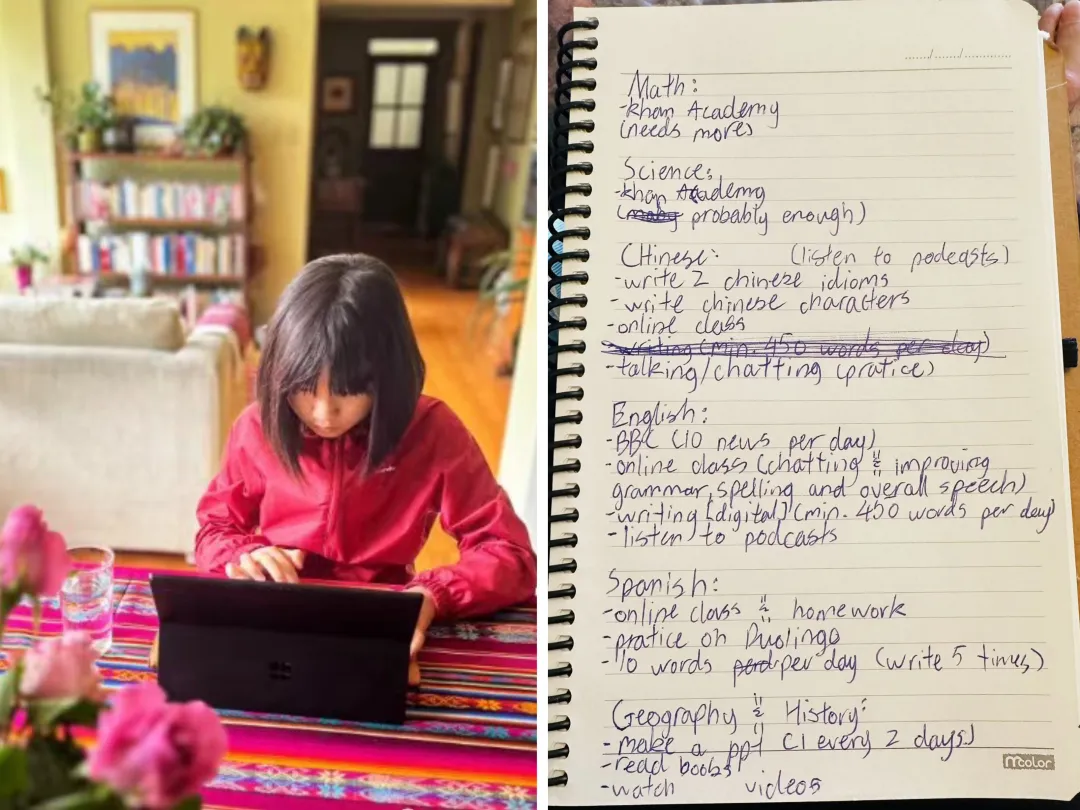 Math:
-khan Academy
(needs more)
Science:
-khan Academy
( probably enough)
CHinese: (listen to podcasts)
-write 2 chinese idioms
-write chinese characters
-online class
-writing (min. 450 words per day)
-talking/chatting (pratice)
English:
-BBC (10 news per day)
-online class (chatting & improving
grammar, spelling and overall speech)
-writing [digital] (min. 450 words per day)
-listen to podcasts
Spanish:
-online class & homework
-pratice on Duolingo
-10 words per day (write 5 times)
Geography & History:
-make a ppt (1 every 2 days)
-read boobs
-watch videos
mcolor